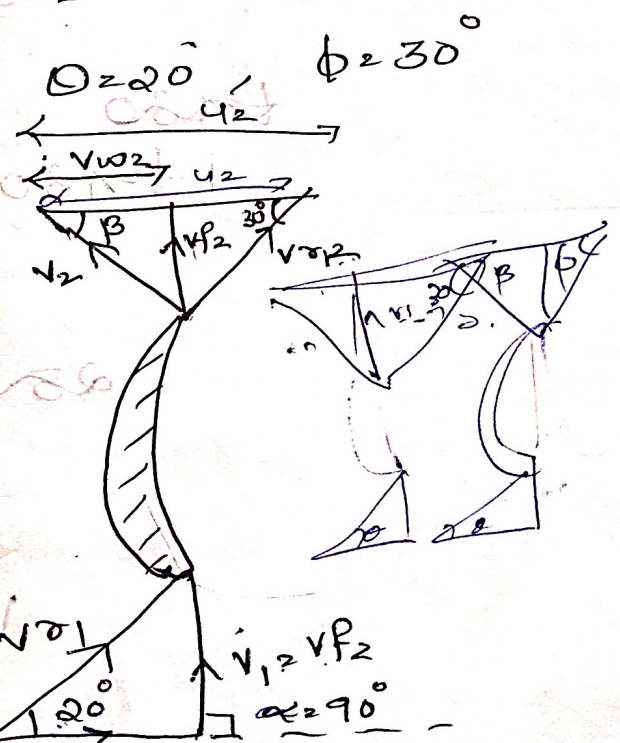 θ=20° φ=30°
u2
Vw2
u2
β Vf2 30°
V2 Vr2
30 β φ
Vr1
V1=Vf2
20° α=90°
θ θ